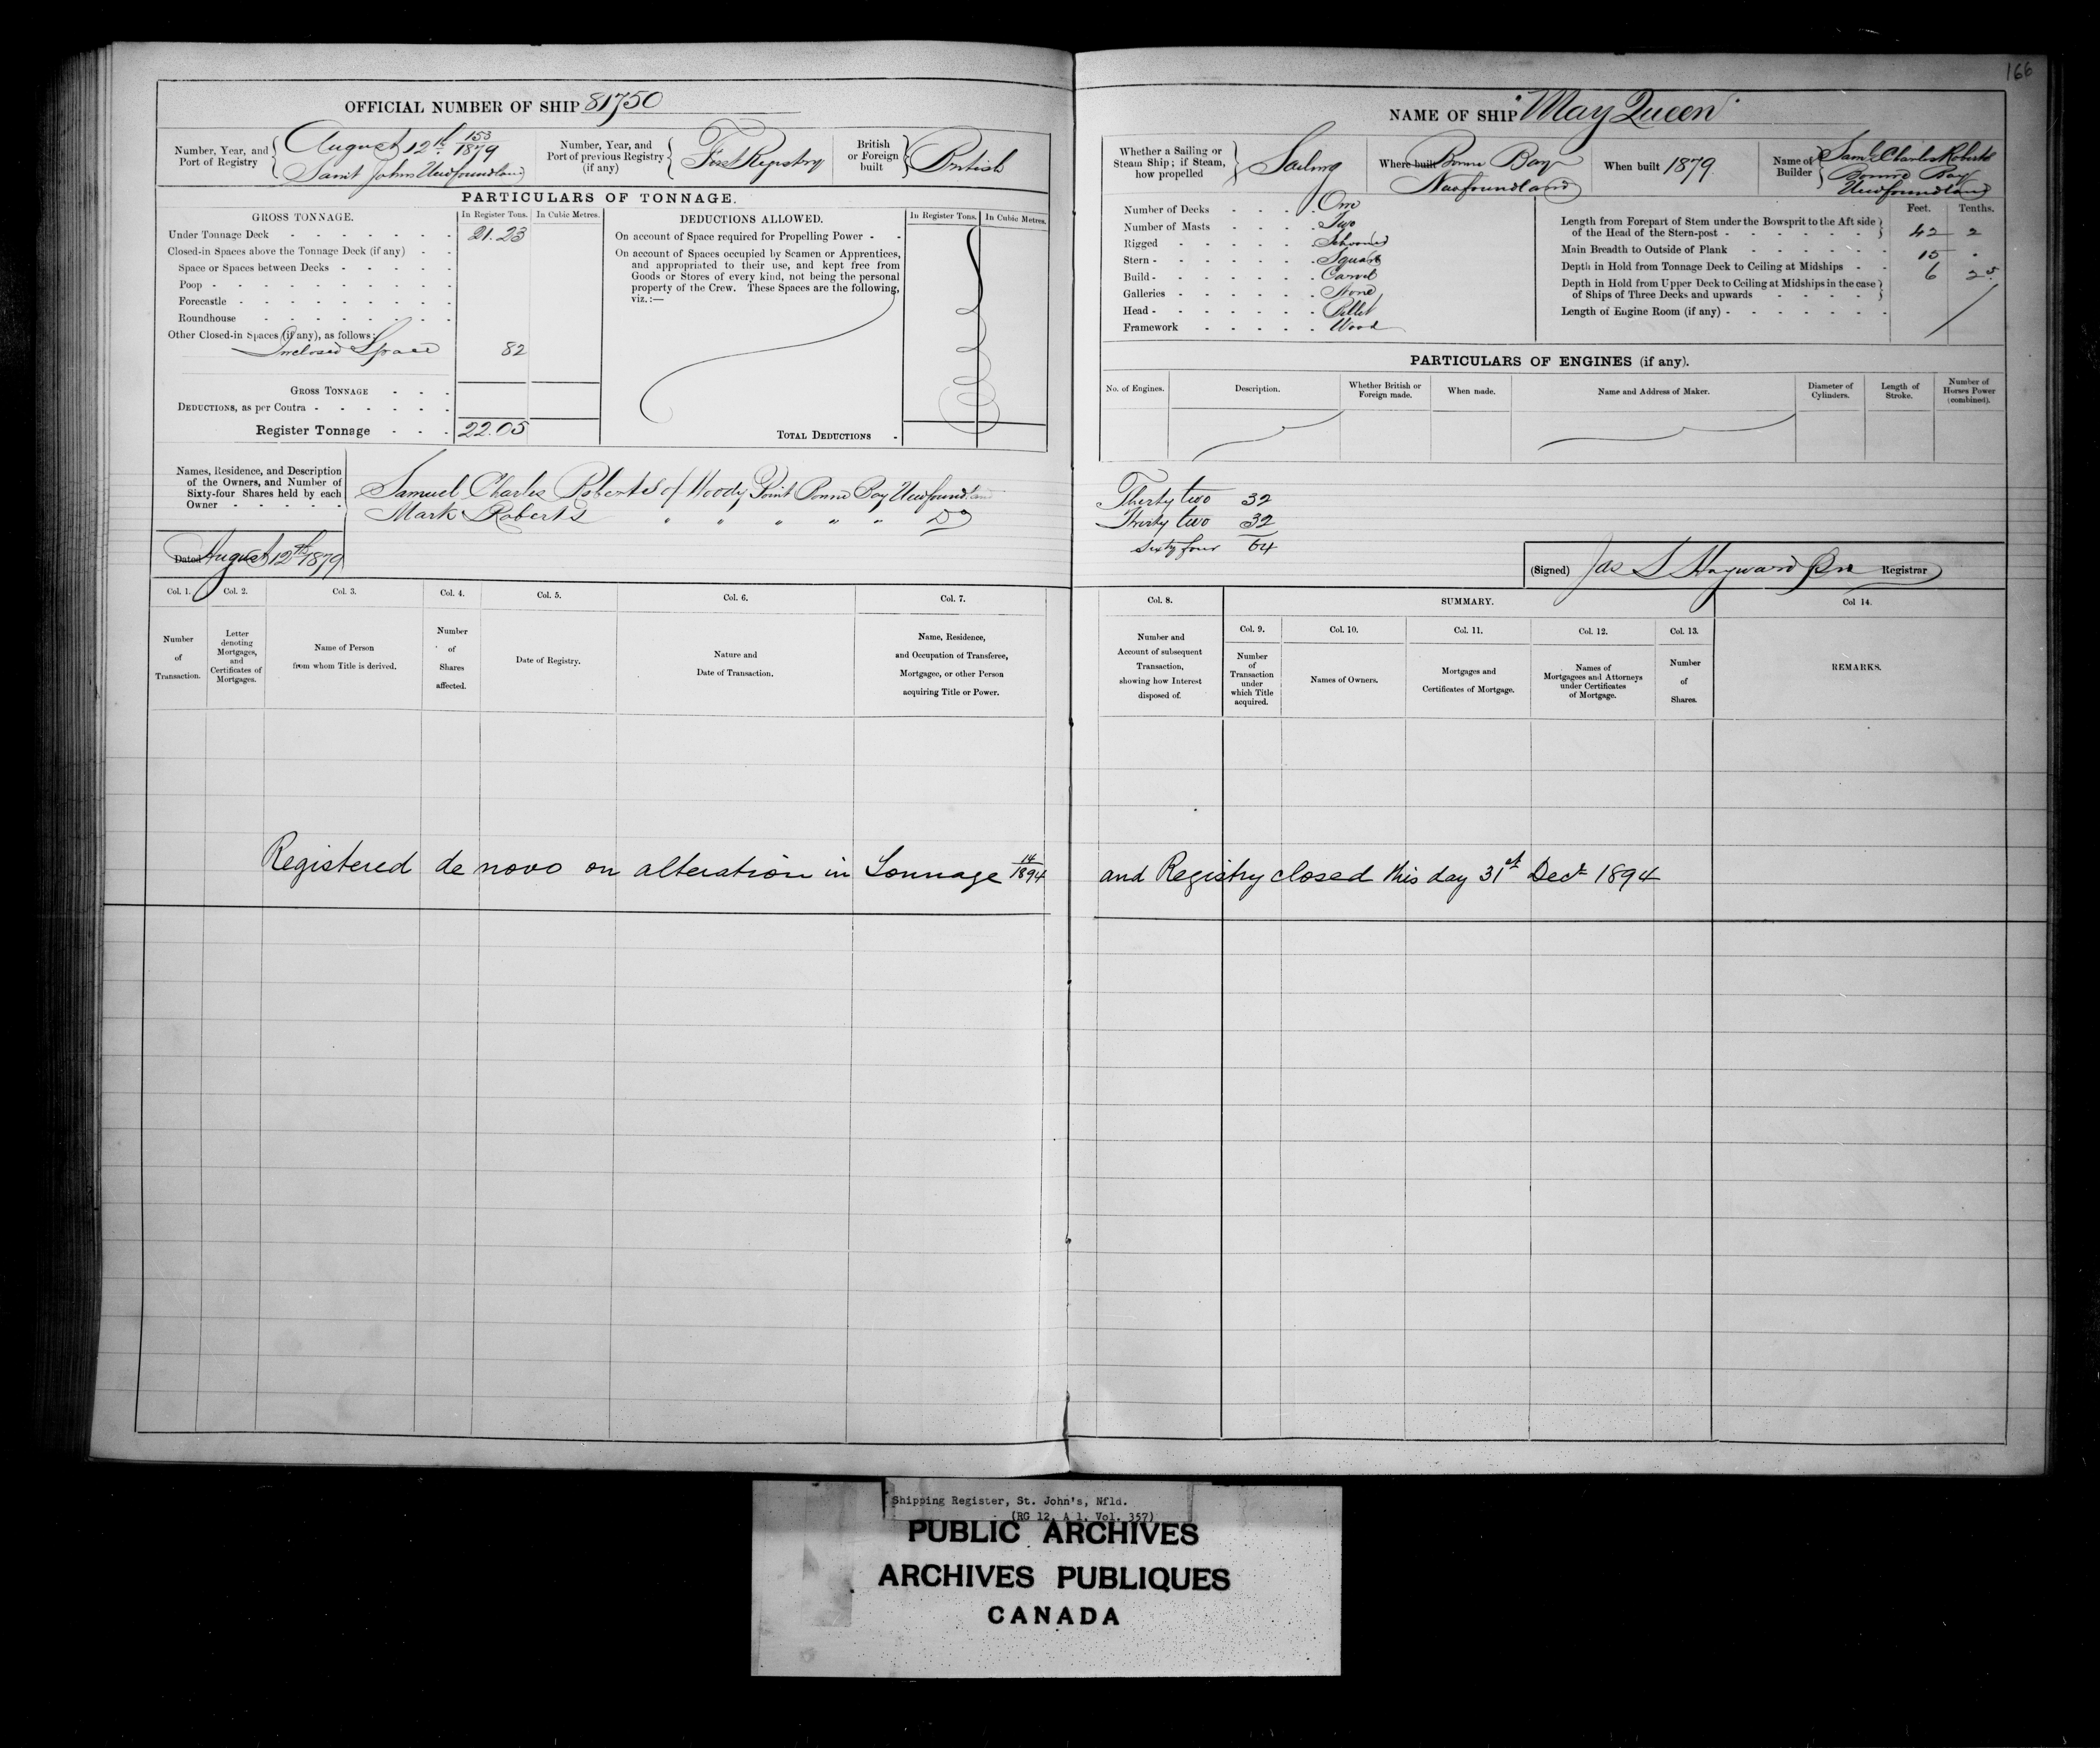 166
OFFICIAL NUMBER OF SHIP 81750
Number, Year, and Port of Registry { August 12th 153/1879
Saint Johns Newfoundland
Number, Year, and Port of previous Registry (if any) { First Registry
British or Foreign built } British
PARTICULARS OF TONNAGE.
GROSS TONNAGE. In Register Tons. In Cubic Metres.
Under Tonnage Deck 21.23
Closed-in Spaces above the Tonnage Deck (if any)
Space or Spaces between Decks
Poop
Forecastle
Roundhouse
Other Closed-in Spaces (if any), as follows:
Inclosed Space 82
GROSS TONNAGE
DEDUCTIONS, as per Contra
Register Tonnage 22.05
DEDUCTIONS ALLOWED. In Register Tons. In Cubic Metres.
On account of Space required for Propelling Power
On account of Spaces occupied by Seamen or Apprentices,
and appropriated to their use, and kept free from
Goods or Stores of every kind, not being the personal
property of the Crew. These Spaces are the following,
viz.:—
TOTAL DEDUCTIONS
Names, Residence, and Description
of the Owners, and Number of
Sixty-four Shares held by each
Owner
Samuel Charles Roberts of Woody Point Bonne Bay Newfoundland
Mark Roberts " " " " " Do
Dated August 12th 1879
Col. 1. Col. 2. Col. 3. Col. 4. Col. 5. Col. 6. Col. 7.
Number of Transaction.
Letter denoting Mortgages, and Certificates of Mortgages.
Name of Person from whom Title is derived.
Number of Shares affected.
Date of Registry.
Nature and Date of Transaction.
Name, Residence, and Occupation of Transferee, Mortgagee, or other Person acquiring Title or Power.
Registered de novo on alteration in Tonnage 14/1894
NAME OF SHIP "May Queen"
Whether a Sailing or Steam Ship; if Steam, how propelled } Sailing
Where built Bonne Bay
Newfoundland
When built 1879
Name of Builder { Saml Charles Roberts
Bonne Bay
Newfoundland
Number of Decks One
Number of Masts Two
Rigged Schooner
Stern Square
Build Carvel
Galleries None
Head Billet
Framework Wood
Feet. Tenths.
Length from Forepart of Stem under the Bowsprit to the Aft side
of the Head of the Stern-post } 42 2
Main Breadth to Outside of Plank 15 .
Depth in Hold from Tonnage Deck to Ceiling at Midships 6 25
Depth in Hold from Upper Deck to Ceiling at Midships in the case
of Ships of Three Decks and upwards }
Length of Engine Room (if any)
PARTICULARS OF ENGINES (if any).
No. of Engines. Description. Whether British or Foreign made. When made. Name and Address of Maker. Diameter of Cylinders. Length of Stroke. Number of Horses Power (combined).
Thirty two 32
Thirty two 32
Sixty four 64
(Signed) Jas S Hayward Registrar
Col. 8. SUMMARY. Col 14.
Col. 9. Col. 10. Col. 11. Col. 12. Col. 13.
Number and Account of subsequent Transaction, showing how Interest disposed of.
Number of Transaction under which Title acquired.
Names of Owners.
Mortgages and Certificates of Mortgage.
Names of Mortgagees and Attorneys under Certificates of Mortgage.
Number of Shares.
REMARKS.
and Registry closed this day 31st Decr 1894
Shipping Register, St. John's, Nfld.
(RG 12, A 1, Vol. 357)
PUBLIC ARCHIVES
ARCHIVES PUBLIQUES
CANADA